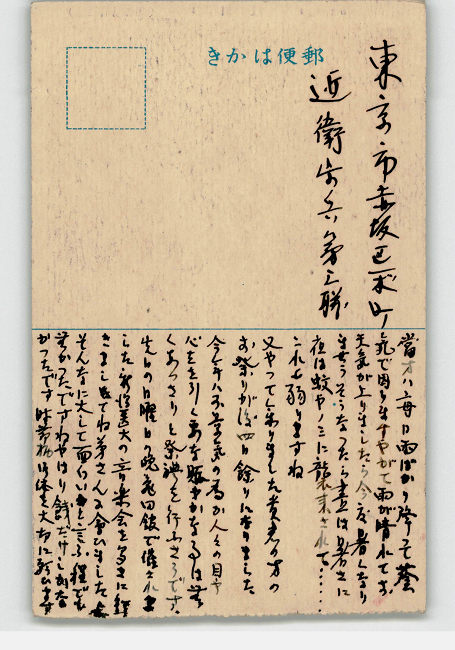 郵便はかき
東京市赤坂区一ツ木町
近衛歩兵第三聯
當方ハ毎日雨ばかり降って蒸
気で困ります やがて雨が晴れて
天気が上りましたら今度暑くなり
ませうそうなったら昼は暑さに
夜は蚊やノミに襲来されて……
これも弱りますね
又やって参りました貴君の方の
お祭りが後四日餘りになりました
今年ハ不景気の為か人々の目や
心をを引く 賑やかな事は無
くあっさりと祭典を行ふさうです。
先日の日曜日の晩亀田館で催されま
した新潟医大の音楽会をききに行
きましてね弟さんに会ひました
そんなに大して面白いと言ふ程でも
無かったですねやはり銭だけしかな
かったです 時節柄御体を大切に祈ります